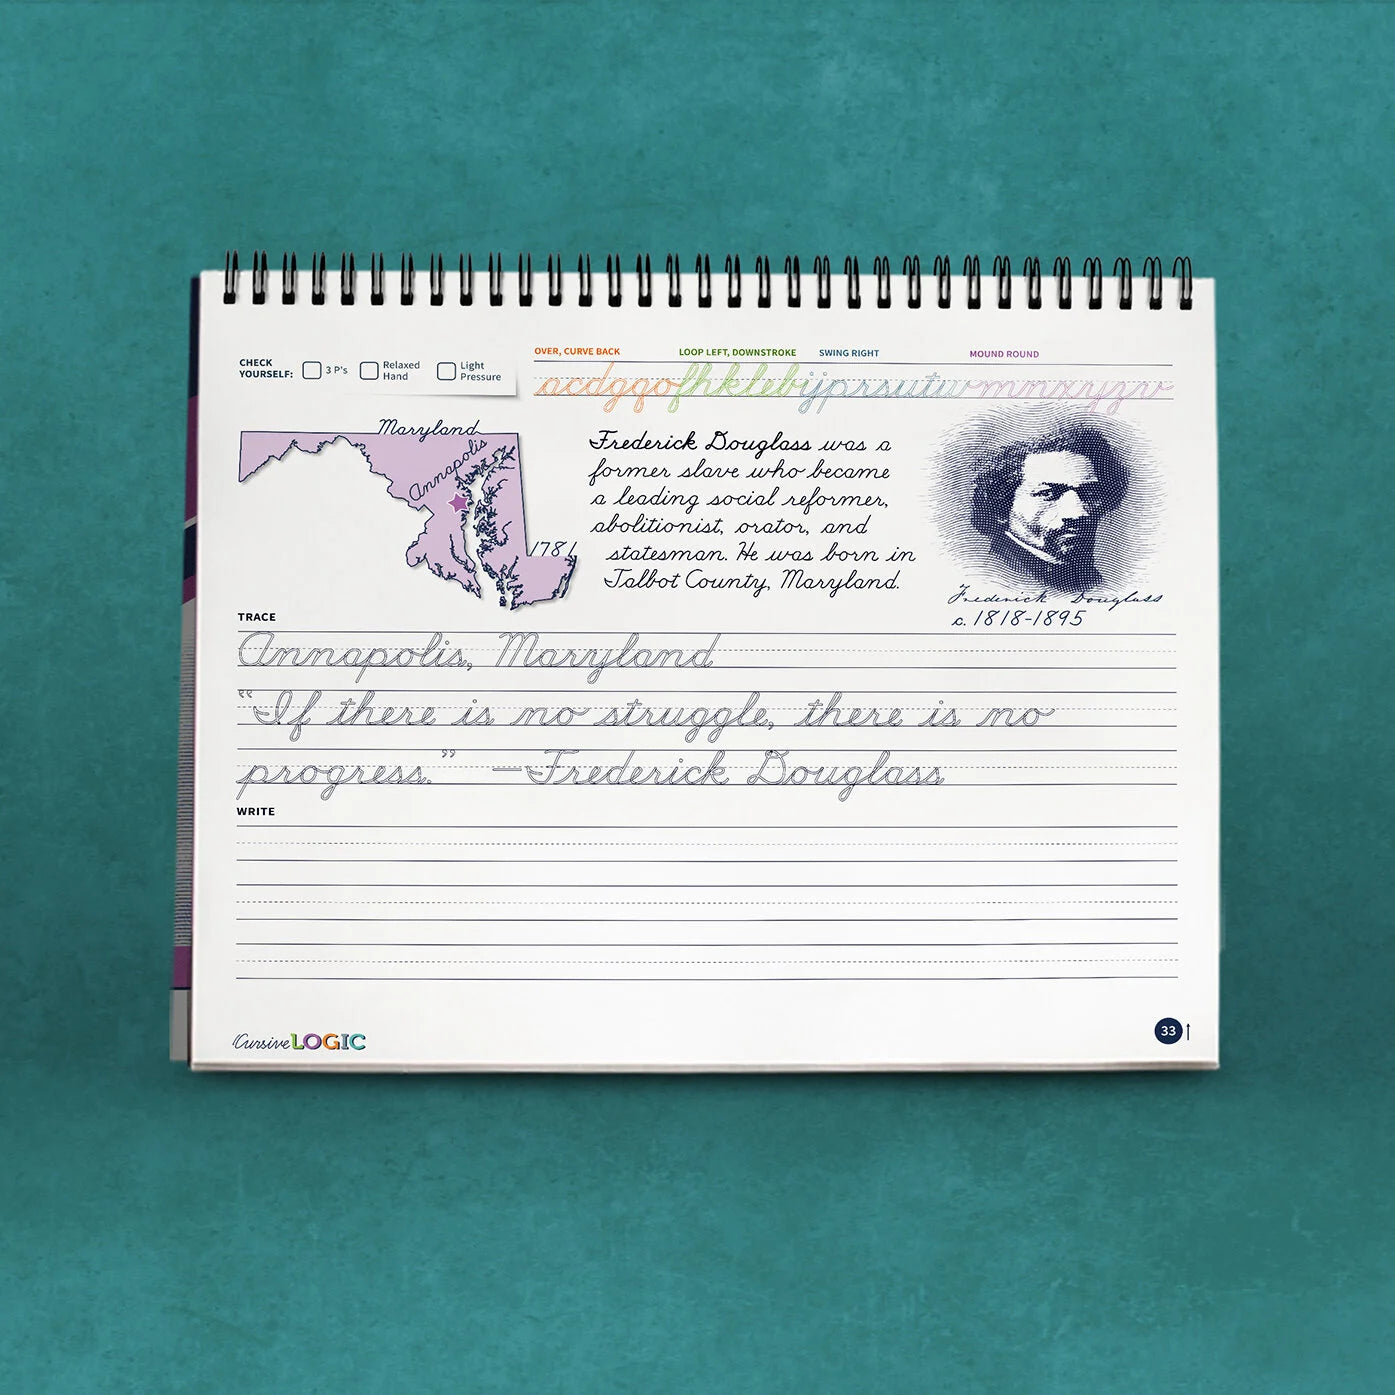 CHECK
YOURSELF:
3 P's
Relaxed
Hand
Light
Pressure
OVER, CURVE BACK
LOOP LEFT, DOWNSTROKE
SWING RIGHT
MOUND ROUND
acdgqofhklebijprsutwmnxyzv
Maryland
Annapolis
1781
Frederick Douglass was a
former slave who became
a leading social reformer,
abolitionist, orator, and
statesman. He was born in
Talbot County, Maryland.
Frederick Douglass
c. 1818-1895
TRACE
Annapolis, Maryland
“If there is no struggle, there is no
progress.” —Frederick Douglass
WRITE
CursiveLOGIC
33